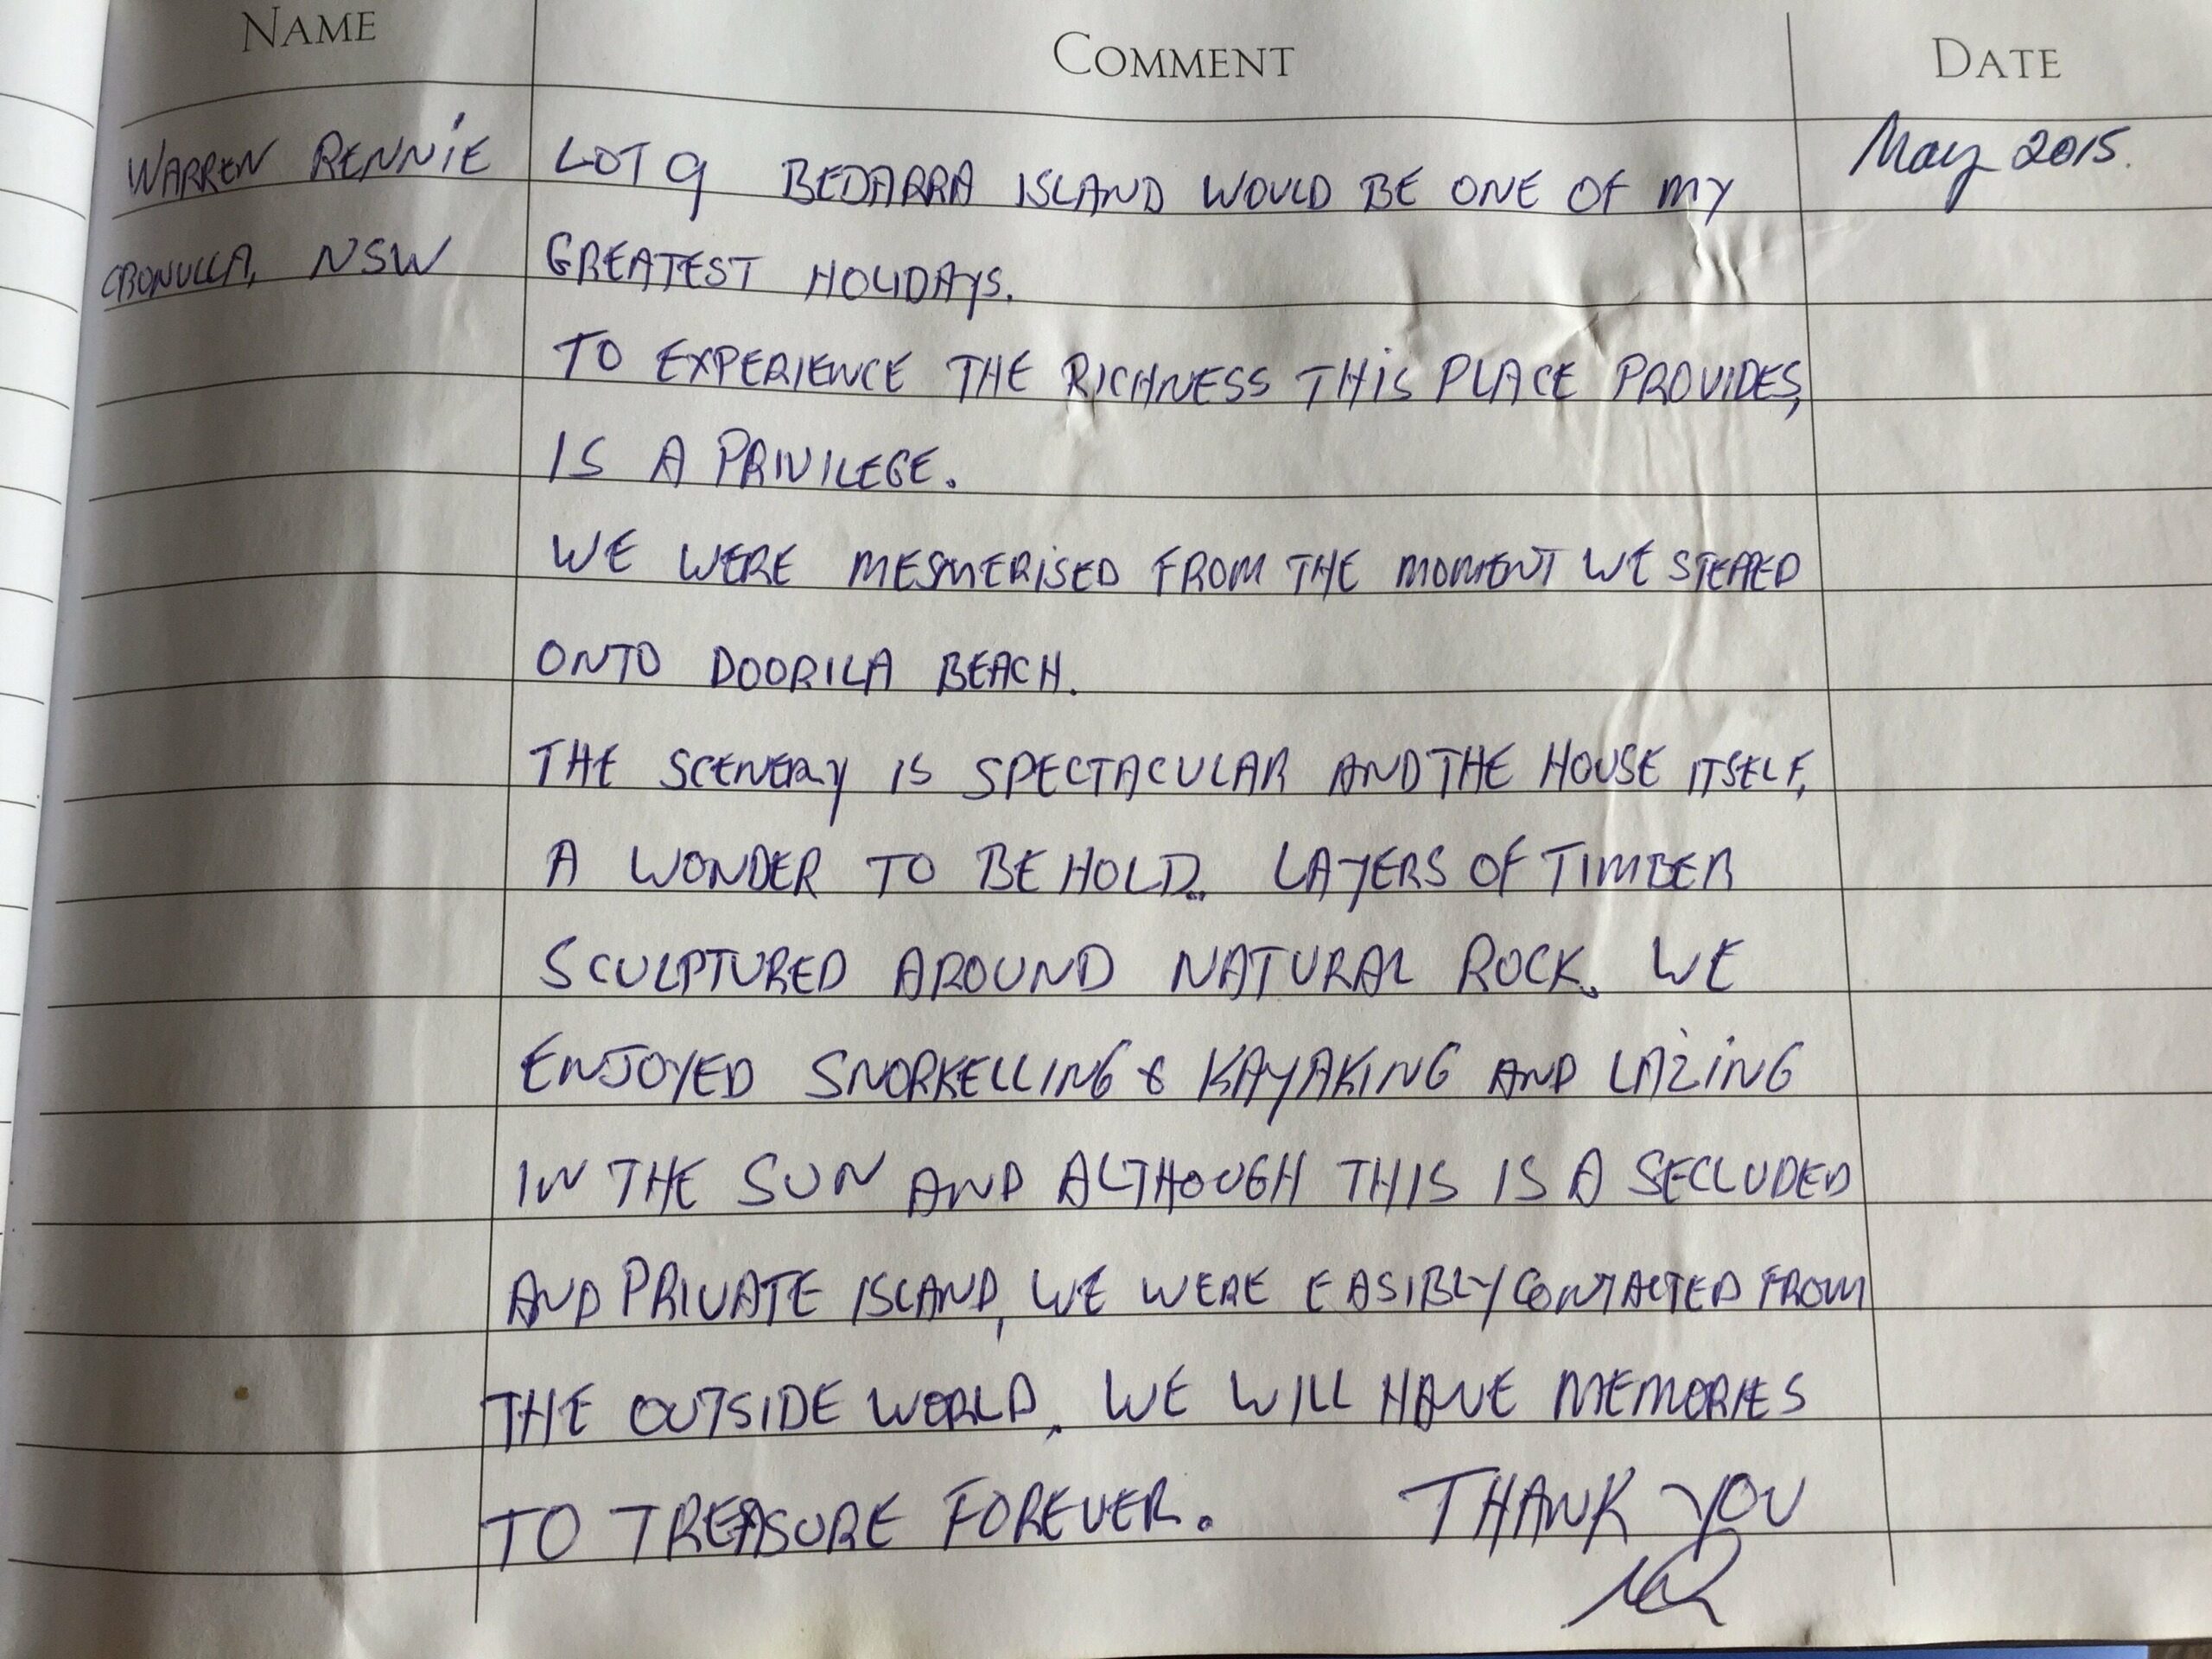 NAME COMMENT DATE
WARREN RENNIE LOT 9 BEDARRA ISLAND WOULD BE ONE OF MY May 2015.
CRONULLA, NSW GREATEST HOLIDAYS.
TO EXPERIENCE THE RICHNESS THIS PLACE PROVIDES,
IS A PRIVILEGE.
WE WERE MESMERISED FROM THE MOMENT WE STEPPED
ONTO DOORILA BEACH.
THE SCENERY IS SPECTACULAR AND THE HOUSE ITSELF,
A WONDER TO BE HOLD. LAYERS OF TIMBER
SCULPTURED AROUND NATURAL ROCK. WE
ENJOYED SNORKELLING & KAYAKING AND LAZING
IN THE SUN AND ALTHOUGH THIS IS A SECLUDED
AND PRIVATE ISLAND, WE WERE EASIBLY CONTACTED FROM
THE OUTSIDE WORLD. WE WILL HAVE MEMORIES
TO TREASURE FOREVER. THANK YOU